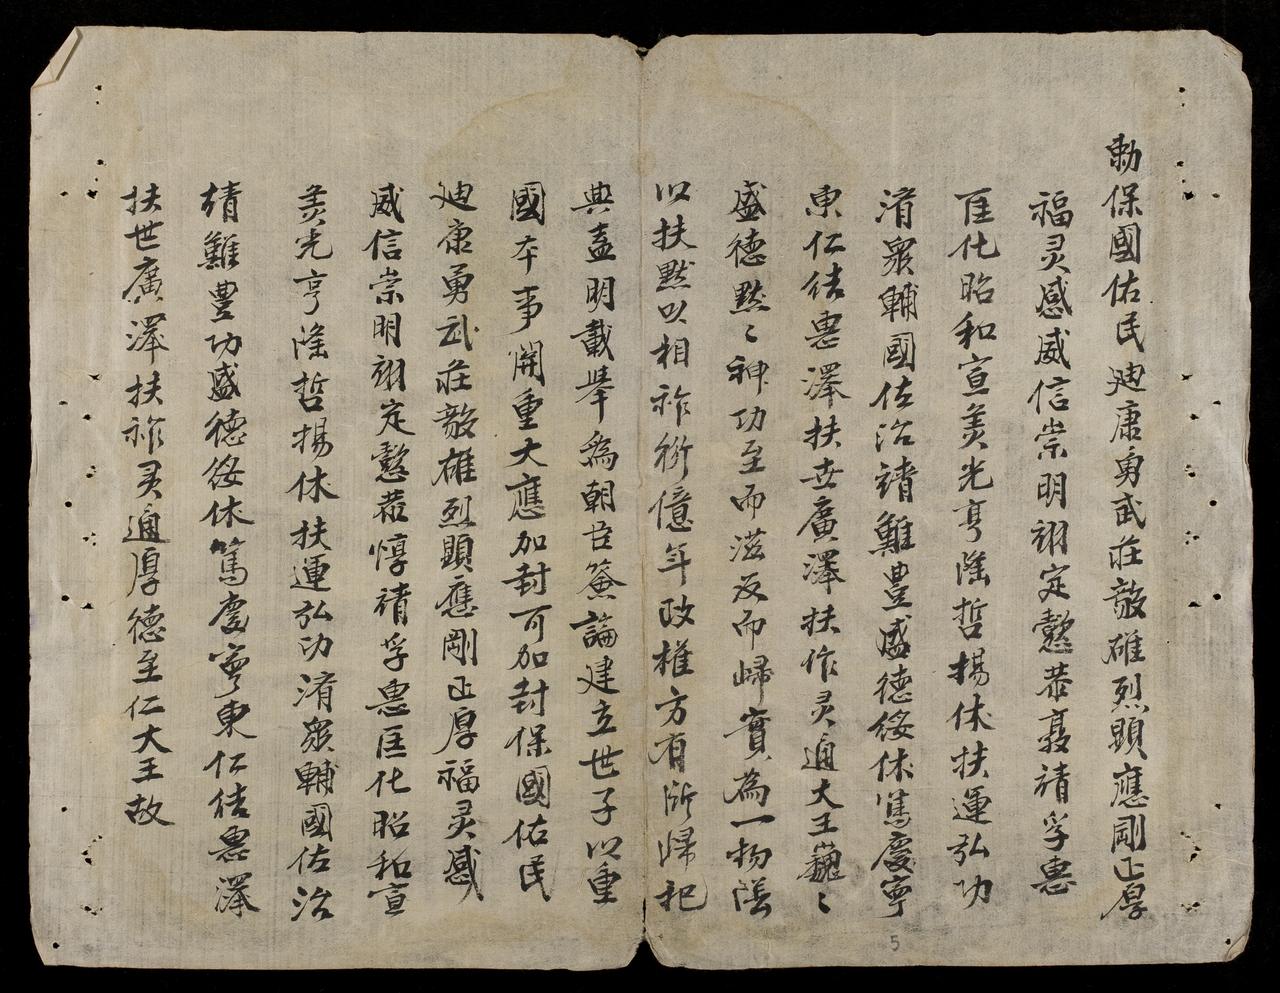 勅保國佑民迪康勇武莊毅雄烈顕應剛正厚
福灵感威信崇明翊定懿恭
靖孚惠
匡化昭和宣美光亨隆哲揚休扶運弘功
淯衆輔國佐治靖難豊盛德綏休篤慶寕
東仁佶惠澤扶世廣澤扶作灵通大王巍〻
盛德默〻神功至而滋
而歸實為一物
以扶默以相祚衍億年政權方有所歸祀
典盍明載舉為朝臣僉論建立世子以重
國本事開重大應加封可加封保國佑民
迪康勇武莊毅雄烈顕應剛正厚福灵感
威信崇明翊定懿恭惇靖孚惠匡化昭和宣
美光亨隆哲揚休扶運弘功淯衆輔國佐治
靖難豊功盛德綏休篤慶寕東仁佶惠澤
扶世廣澤扶祚灵通厚德至仁大王故
5